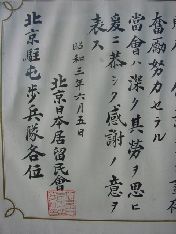 奮勵努力セラル
當會ハ深ク其勞ヲ思ヒ
爰ニ恭シク感謝ノ意ヲ
表ス
昭和三年六月五日
北京日本居留民會
北京駐屯歩兵隊各位